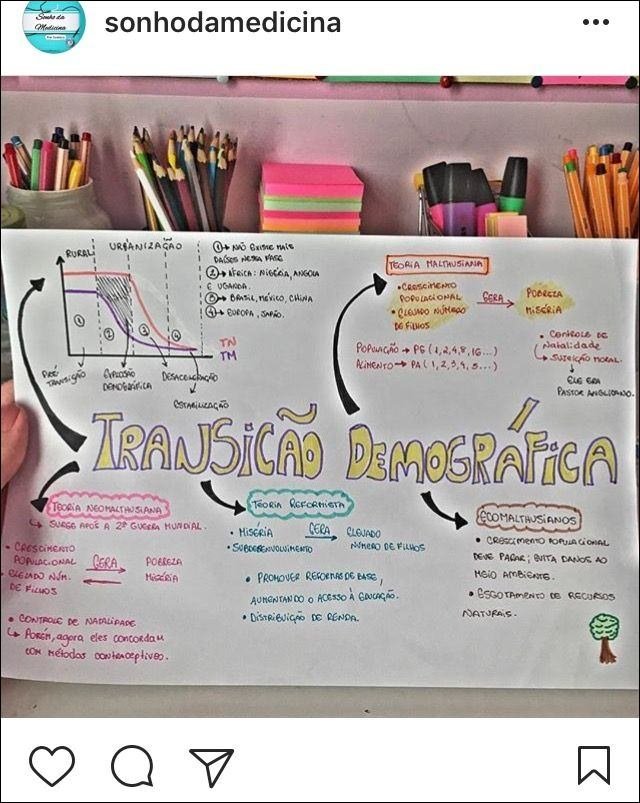 Sonho da
Medicina
sonhodamedicina
RURAL
URBANIZAÇÃO
① ② ③ ④
TN
TM
PRÉ
TRANSIÇÃO
EXPLOSÃO
DEMOGRÁFICA
DESACELERAÇÃO
ESTABILIZAÇÃO
①→ NÃO EXISTE MAIS
PAÍSES NESSA FASE
②→ ÁFRICA: NIGÉRIA, ANGOLA
E UGANDA.
③→ BRASIL, MÉXICO, CHINA
④→ EUROPA, JAPÃO.
TEORIA MALTHUSIANA
• CRESCIMENTO
POPULACIONAL
• ELEVADO NÚMERO
DE FILHOS
GERA →
POBREZA
MISÉRIA
POPULAÇÃO → PG (1,2,4,8,16...)
ALIMENTO → PA (1,2,3,4,5...)
• CONTROLE DE
NATALIDADE
↳ SUJEIÇÃO MORAL.
↓
ELE ERA
PASTOR ANGLICANO.
TRANSIÇÃO DEMOGRÁFICA
TEORIA NEOMALTHUSIANA
↳ SURGE APÓS A 2ª GUERRA MUNDIAL.
• CRESCIMENTO
POPULACIONAL
• ELEVADO NÚM.
DE FILHOS
GERA
POBREZA
MISÉRIA
• CONTROLE DE NATALIDADE
↳ PORÉM, agora eles concordam
com métodos contraceptivos.
TEORIA REFORMISTA
• MISÉRIA GERA → ELEVADO
• SUBDESENVOLVIMENTO NÚMERO DE FILHOS
• PROMOVER REFORMAS DE BASE,
AUMENTANDO O ACESSO À EDUCAÇÃO.
• DISTRIBUIÇÃO DE RENDA.
ECOMALTHUSIANOS
• CRESCIMENTO POPULACIONAL
DEVE PARAR; EVITA DANOS AO
MEIO AMBIENTE.
• ESGOTAMENTO DE RECURSOS
NATURAIS.